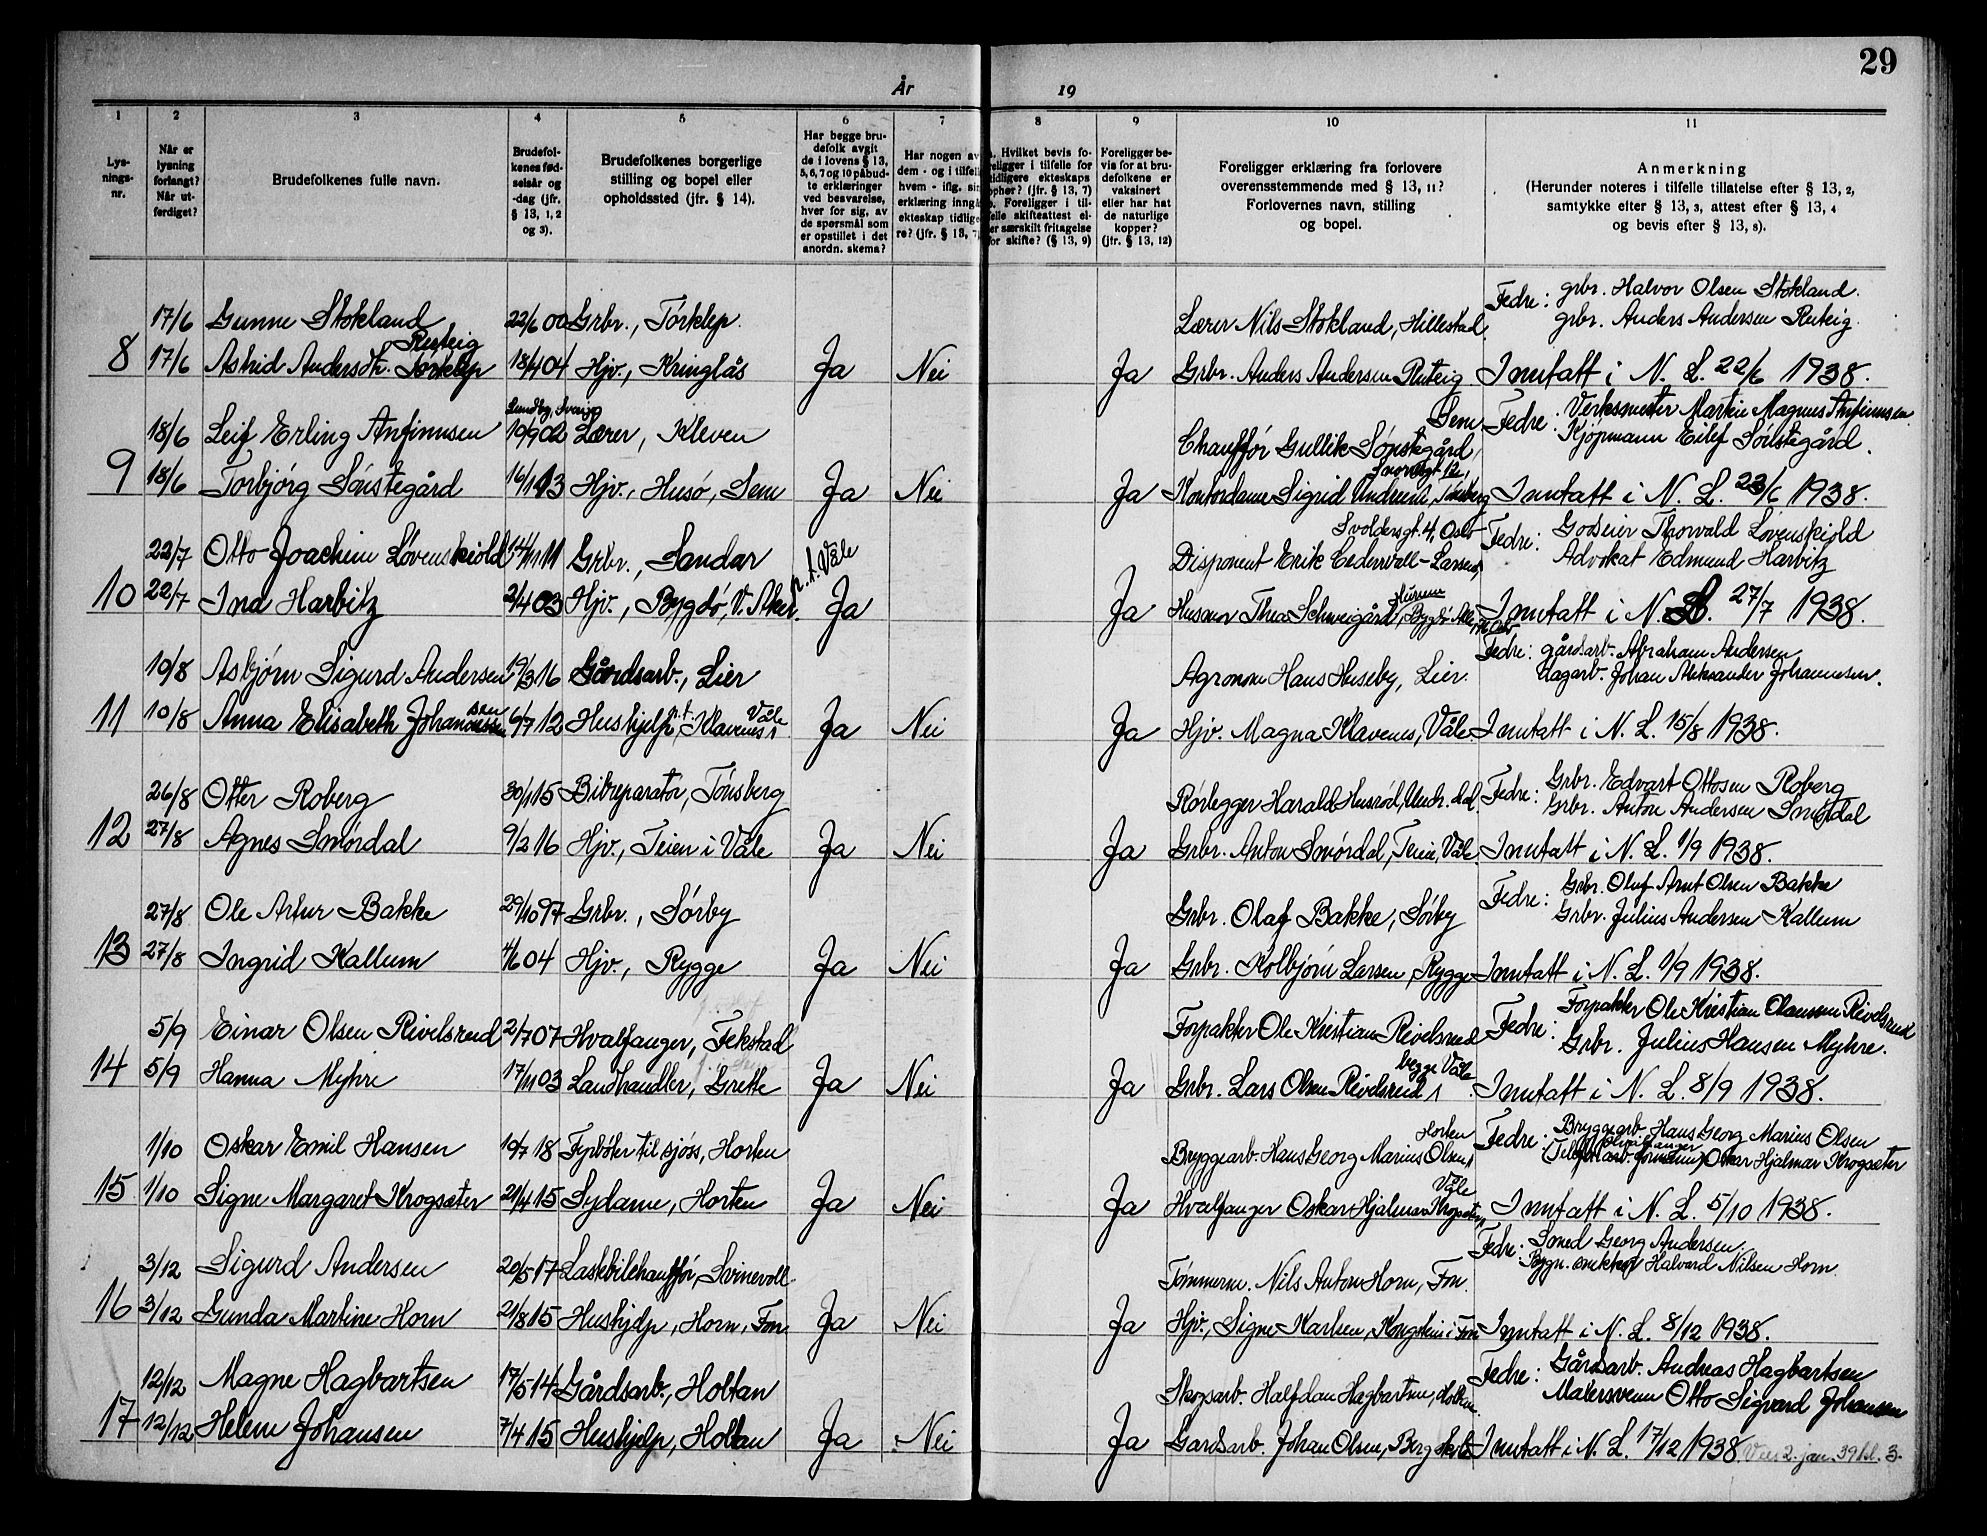 29
År 19
1 2 3 4 5 6 7 8 9 10 11
Lys-
nings-
nr.
Når er
lysning
forlangt?
Når ut-
ferdiget?
Brudefolkenes fulle navn.
Brudefol-
kenes fød-
selsår og
-dag (jfr.
§ 13, 1, 2
og 3).
Brudefolkenes borgerlige
stilling og bopel eller
opholdssted (jfr. § 14).
Har begge bru-
defolk avgit
de i lovens § 13,
5, 6, 7 og 10 påbud-
te erklæringer
ved besvarelse,
hver for sig, av
de spørsmål som
er opstillet i det
anordn. skema?
Har nogen av
dem - og i tilfelle
hvem - iflg. sin
erklæring inngå
ekteskap tidlige
re? (jfr. § 13, 7
Hvilket bevis fo-
religger i tilfelle for
tidligere ekteskaps
opher? (jfr. § 13, 7)
Foreligger i til-
felle skifteattest el-
er særskilt fritagelse
for skifte? (§ 13, 9)
Foreligger be-
vis for at bru-
defolkene er
vaksinert
eller har hat
de naturlige
kopper?
(jfr. § 13, 12)
Foreligger erklæring fra forlovere
overensstemmende med § 13, 11?
Forlovernes navn, stilling
og bopel.
Anmerkning
(Herunder noteres i tilfelle tillatelse efter § 13, 2,
samtykke efter § 13, 3, attest efter § 13, 4
og bevis efter § 13, 8).
17/6 Gunne Stokland 22/6 00 Grbr., Torklep. Lærer Nils Stokland, Hillestad. Fedre: grbr. Halvor Olsen Stokland.
grbr. Anders Andersen Ruteig.
Ruteig
8 17/6 Astrid Andersdt. Torklep 18/4 04 Hjv., Kringlås Ja Nei Ja Grbr. Anders Andersen Ruteig Inntatt i N. L. 22/6 1938.
Lundby, Sverige
18/6 Leif Erling Anfinnsen 10/9 02 Lærer, Kleven Chauffør Gullik Sønstegård, Sem Fedre: Verksmester Martin Magnus Anfinnsen.
Kjøpmann Eilef Sønstegård.
9 18/6 Torbjørg Sønstegård 16/1 13 Hjv., Husø, Sem Ja Nei Ja Kontordame Sigrid Tønsberg Inntatt i N. L. 23/6 1938.
Svoldersgt. 4, Oslo
22/7 Otto Joachim Løvenskiold 11 Grbr., Sandar Disponent Erik Cedervall-Larssen, Fedre: Godseier Thorvald Løvenskiold
Advokat Edmund Harbitz
p. t. Våle
10 22/7 Ina Harbitz 2/4 03 Hjv., Bygdø, V. Aker. Ja Ja Husmor Thea Schweigård, Bygdø Inntatt i N. L. 27/7 1938.
10/8 Asbjørn Sigurd Andersen 19/3 16 Gårdsarb., Lier Agronom Hans Huseby, Lier. Fedre: gårdsarb. Abraham Andersen
dagarb. Johan Aleksander Johannessen.
11 10/8 Anna Elisabeth Johannessen 6/7 12 Hushjelp, p.t. Klavenes, Våle Ja Nei Ja Hjv. Magna Klavenes, Våle. Inntatt i N. L. 15/8 1938.
26/8 Otter Roberg 30/1 15 Bilreparatør, Tønsberg Rørlegger Harald Husrød, Undr. dal. Fedre: Grbr. Edvart Ottosen Roberg
Grbr. Anton Andersen Smørdal
12 27/8 Agnes Smørdal 9/2 16 Hjv., Teien i Våle Ja Nei Ja Grbr. Anton Smørdal, Teien, Våle. Inntatt i N. L. 1/9 1938.
27/8 Ole Artur Bakke 29/10 97 Grbr., Sørby Grbr. Olaf Bakke, Sørby Fedre: Grbr. Oluf Arnt Olsen Bakke
Grbr. Julius Andersen Kallum
13 27/8 Ingrid Kallum 4/6 04 Hjv., Rygge Ja Nei Ja Grbr. Kolbjørn Larsen, Rygge Inntatt i N. L. 1/9 1938.
5/9 Einar Olsen Rivelsrud 2/7 07 Hvalfanger, Fekstad Forpakter Ole Kristian Rivelsrud Fedre: Forpakter Ole Kristian Olaussen Rivelsrud
Grbr. Julius Hansen Myhre.
begge Våle
14 5/9 Hanna Myhre 17/11 03 Landhandler, Grette Ja Nei Ja Grbr. Lars Olsen Rivelsrud Inntatt i N. L. 8/9 1938.
1/10 Oskar Emil Hansen 10/7 18 Fyrbøter til sjøss, Horten Bryggearb. Hans Georg Marius Olsen, Horten Fedre: Bryggearb. Hans Georg Marius Olsen
Hvalfanger Oskar Hjalmar Krogsæter
15 1/10 Signe Margaret Krogsæter 21/4 15 Sydame, Horten Ja Nei Ja Hvalfanger Oskar Hjalmar Krogsæter, Våle Inntatt i N. L. 5/10 1938.
3/12 Sigurd Andersen 20/5 17 Lastebilchauffør, Svinevoll Tømmerm. Nils Anton Horn, Fon. Fedre: Smed Georg Andersen.
Bygn. snekker Halvard Nilsen Horn.
16 3/12 Gunda Martine Horn 21/8 15 Hushjelp, Horn, Fon Ja Nei Ja Hjv., Signe Karlsen, Kongstein i Fon Inntatt i N. L. 8/12 1938.
12/12 Magne Hagbartsen 17/5 14 Gårdsarb., Holtan Skogsarb. Halfdan Hagbartsen, Holtan. Fedre: Gårdsarb. Andreas Hagbartsen
Malersvenn Otto Sigvard Johansen
17 12/12 Helene Johansen 7/4 15 Hushjelp, Holtan Ja Nei Ja Gardsarb. Johan Olsen, Berg Inntatt i N. L. 17/12 1938. 2. jan. 39 kl. 3.